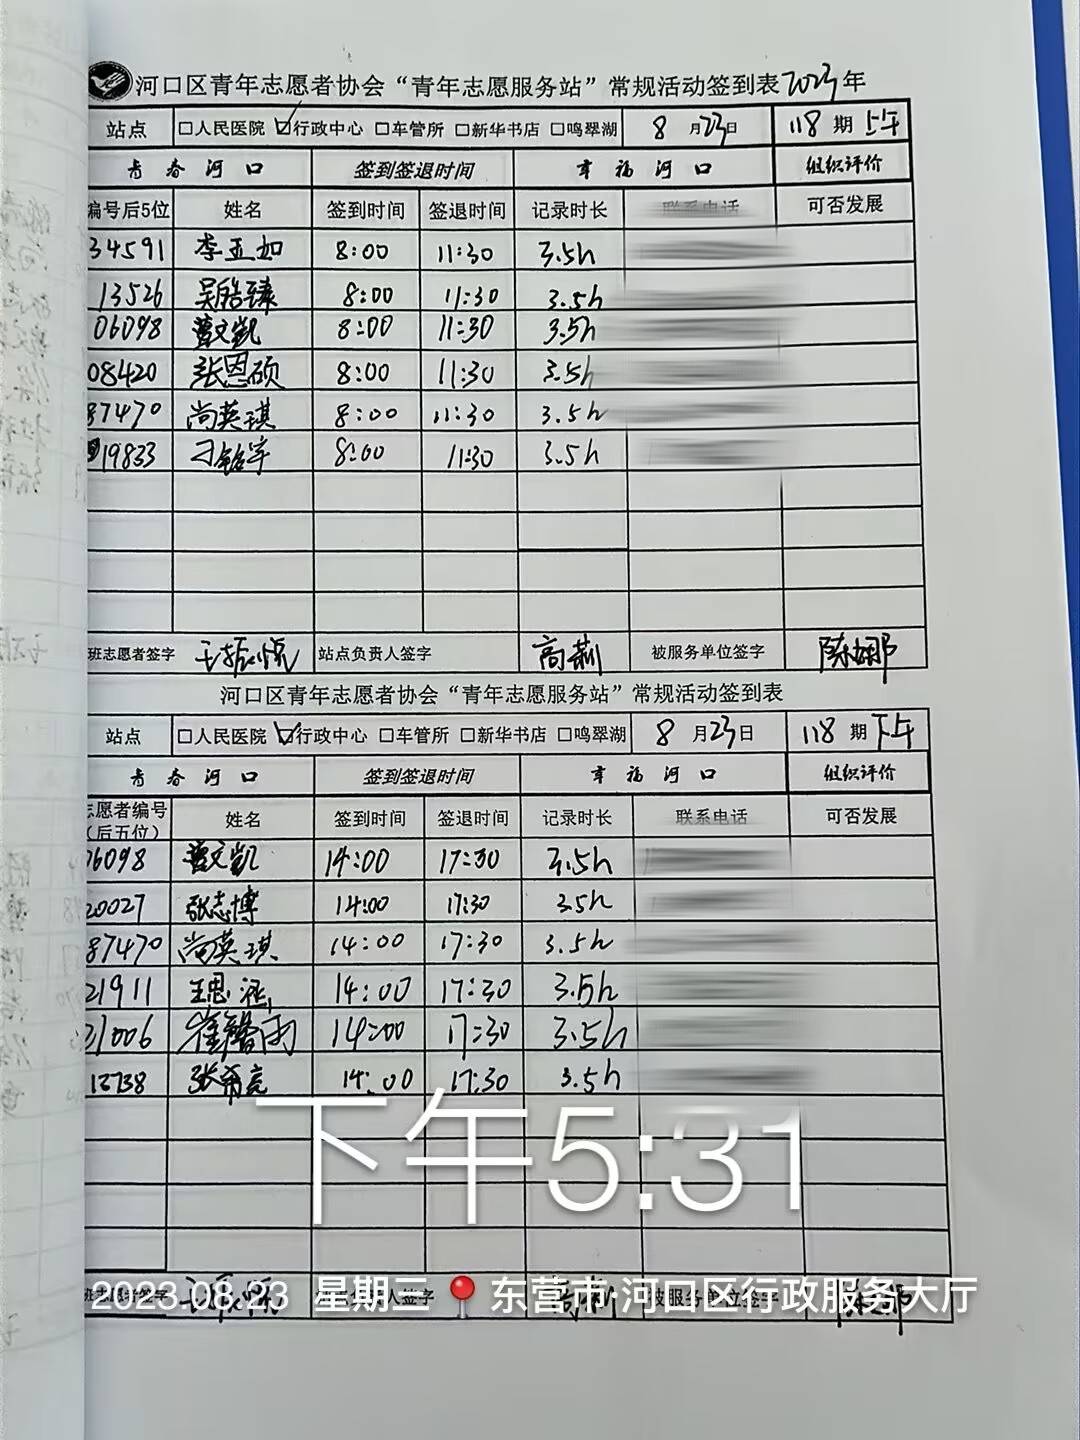 河口区青年志愿者协会“青年志愿服务站”常规活动签到表2023年
站点 □人民医院 ☑行政中心 □车管所 □新华书店 □鸣翠湖 8月23日 118期 上午
青春河口 签到签退时间 幸福河口 组织评价
编号后5位 姓名 签到时间 签退时间 记录时长 联系电话 可否发展
34591 李亚如 8:00 11:30 3.5h
13526 吴皓臻 8:00 11:30 3.5h
06098 曹文凯 8:00 11:30 3.5h
08420 张恩硕 8:00 11:30 3.5h
87470 尚英琪 8:00 11:30 3.5h
19833 刁铭宇 8:00 11:30 3.5h
班志愿者签字 王振悦 站点负责人签字 高莉 被服务单位签字 陈娜
河口区青年志愿者协会“青年志愿服务站”常规活动签到表
站点 □人民医院 ☑行政中心 □车管所 □新华书店 □鸣翠湖 8月23日 118期 下午
青春河口 签到签退时间 幸福河口 组织评价
志愿者编号
（后五位） 姓名 签到时间 签退时间 记录时长 联系电话 可否发展
06098 曹文凯 14:00 17:30 3.5h
20027 张志博 14:00 17:30 3.5h
87470 尚英琪 14:00 17:30 3.5h
21911 王思涵 14:00 17:30 3.5h
21006 崔馨雨 14:00 17:30 3.5h
12738 张希亮 14:00 17:30 3.5h
下午5:31
班志愿者签字 人签字 被服务单位签字
2023.08.23 星期三 东营市·河口区行政服务大厅